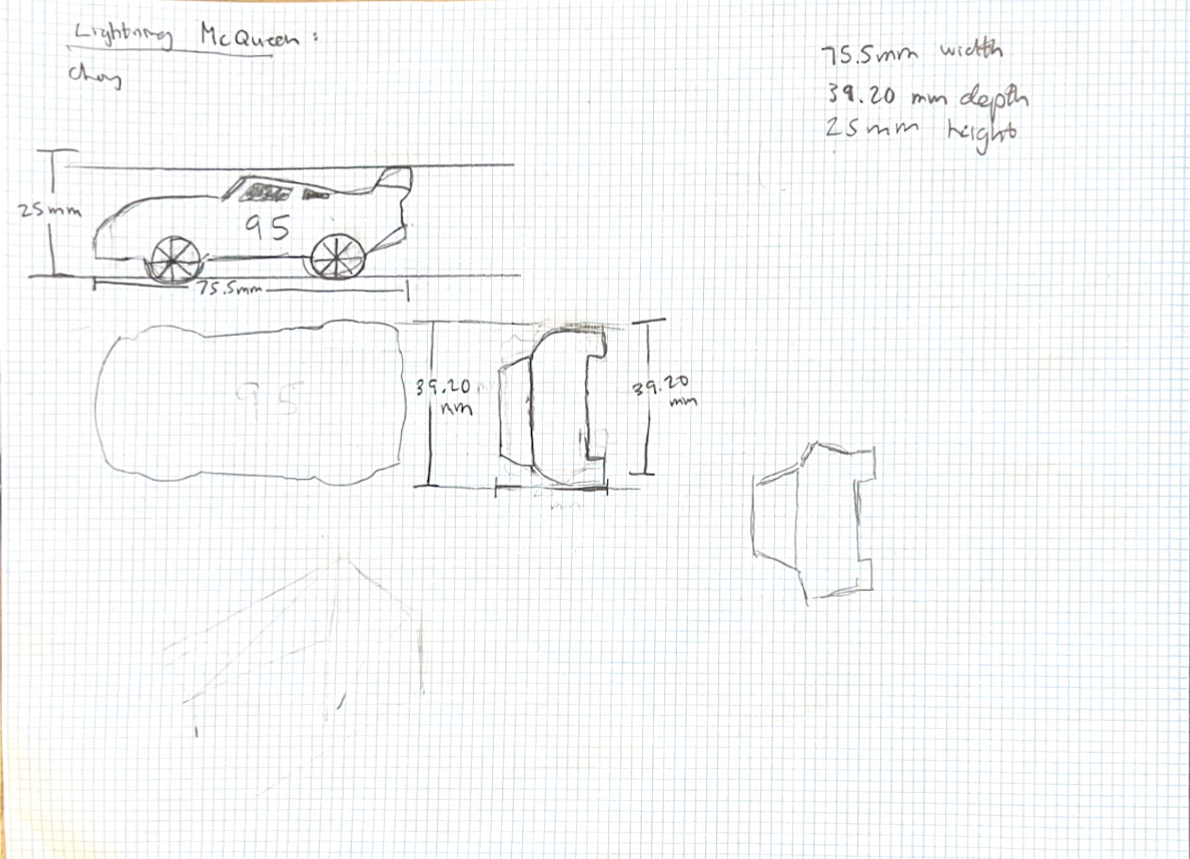 Lightning McQueen:
75.5mm width
39.20 mm depth
25mm height
25mm
95
75.5mm
95
39.20
mm
39.20
mm
mm